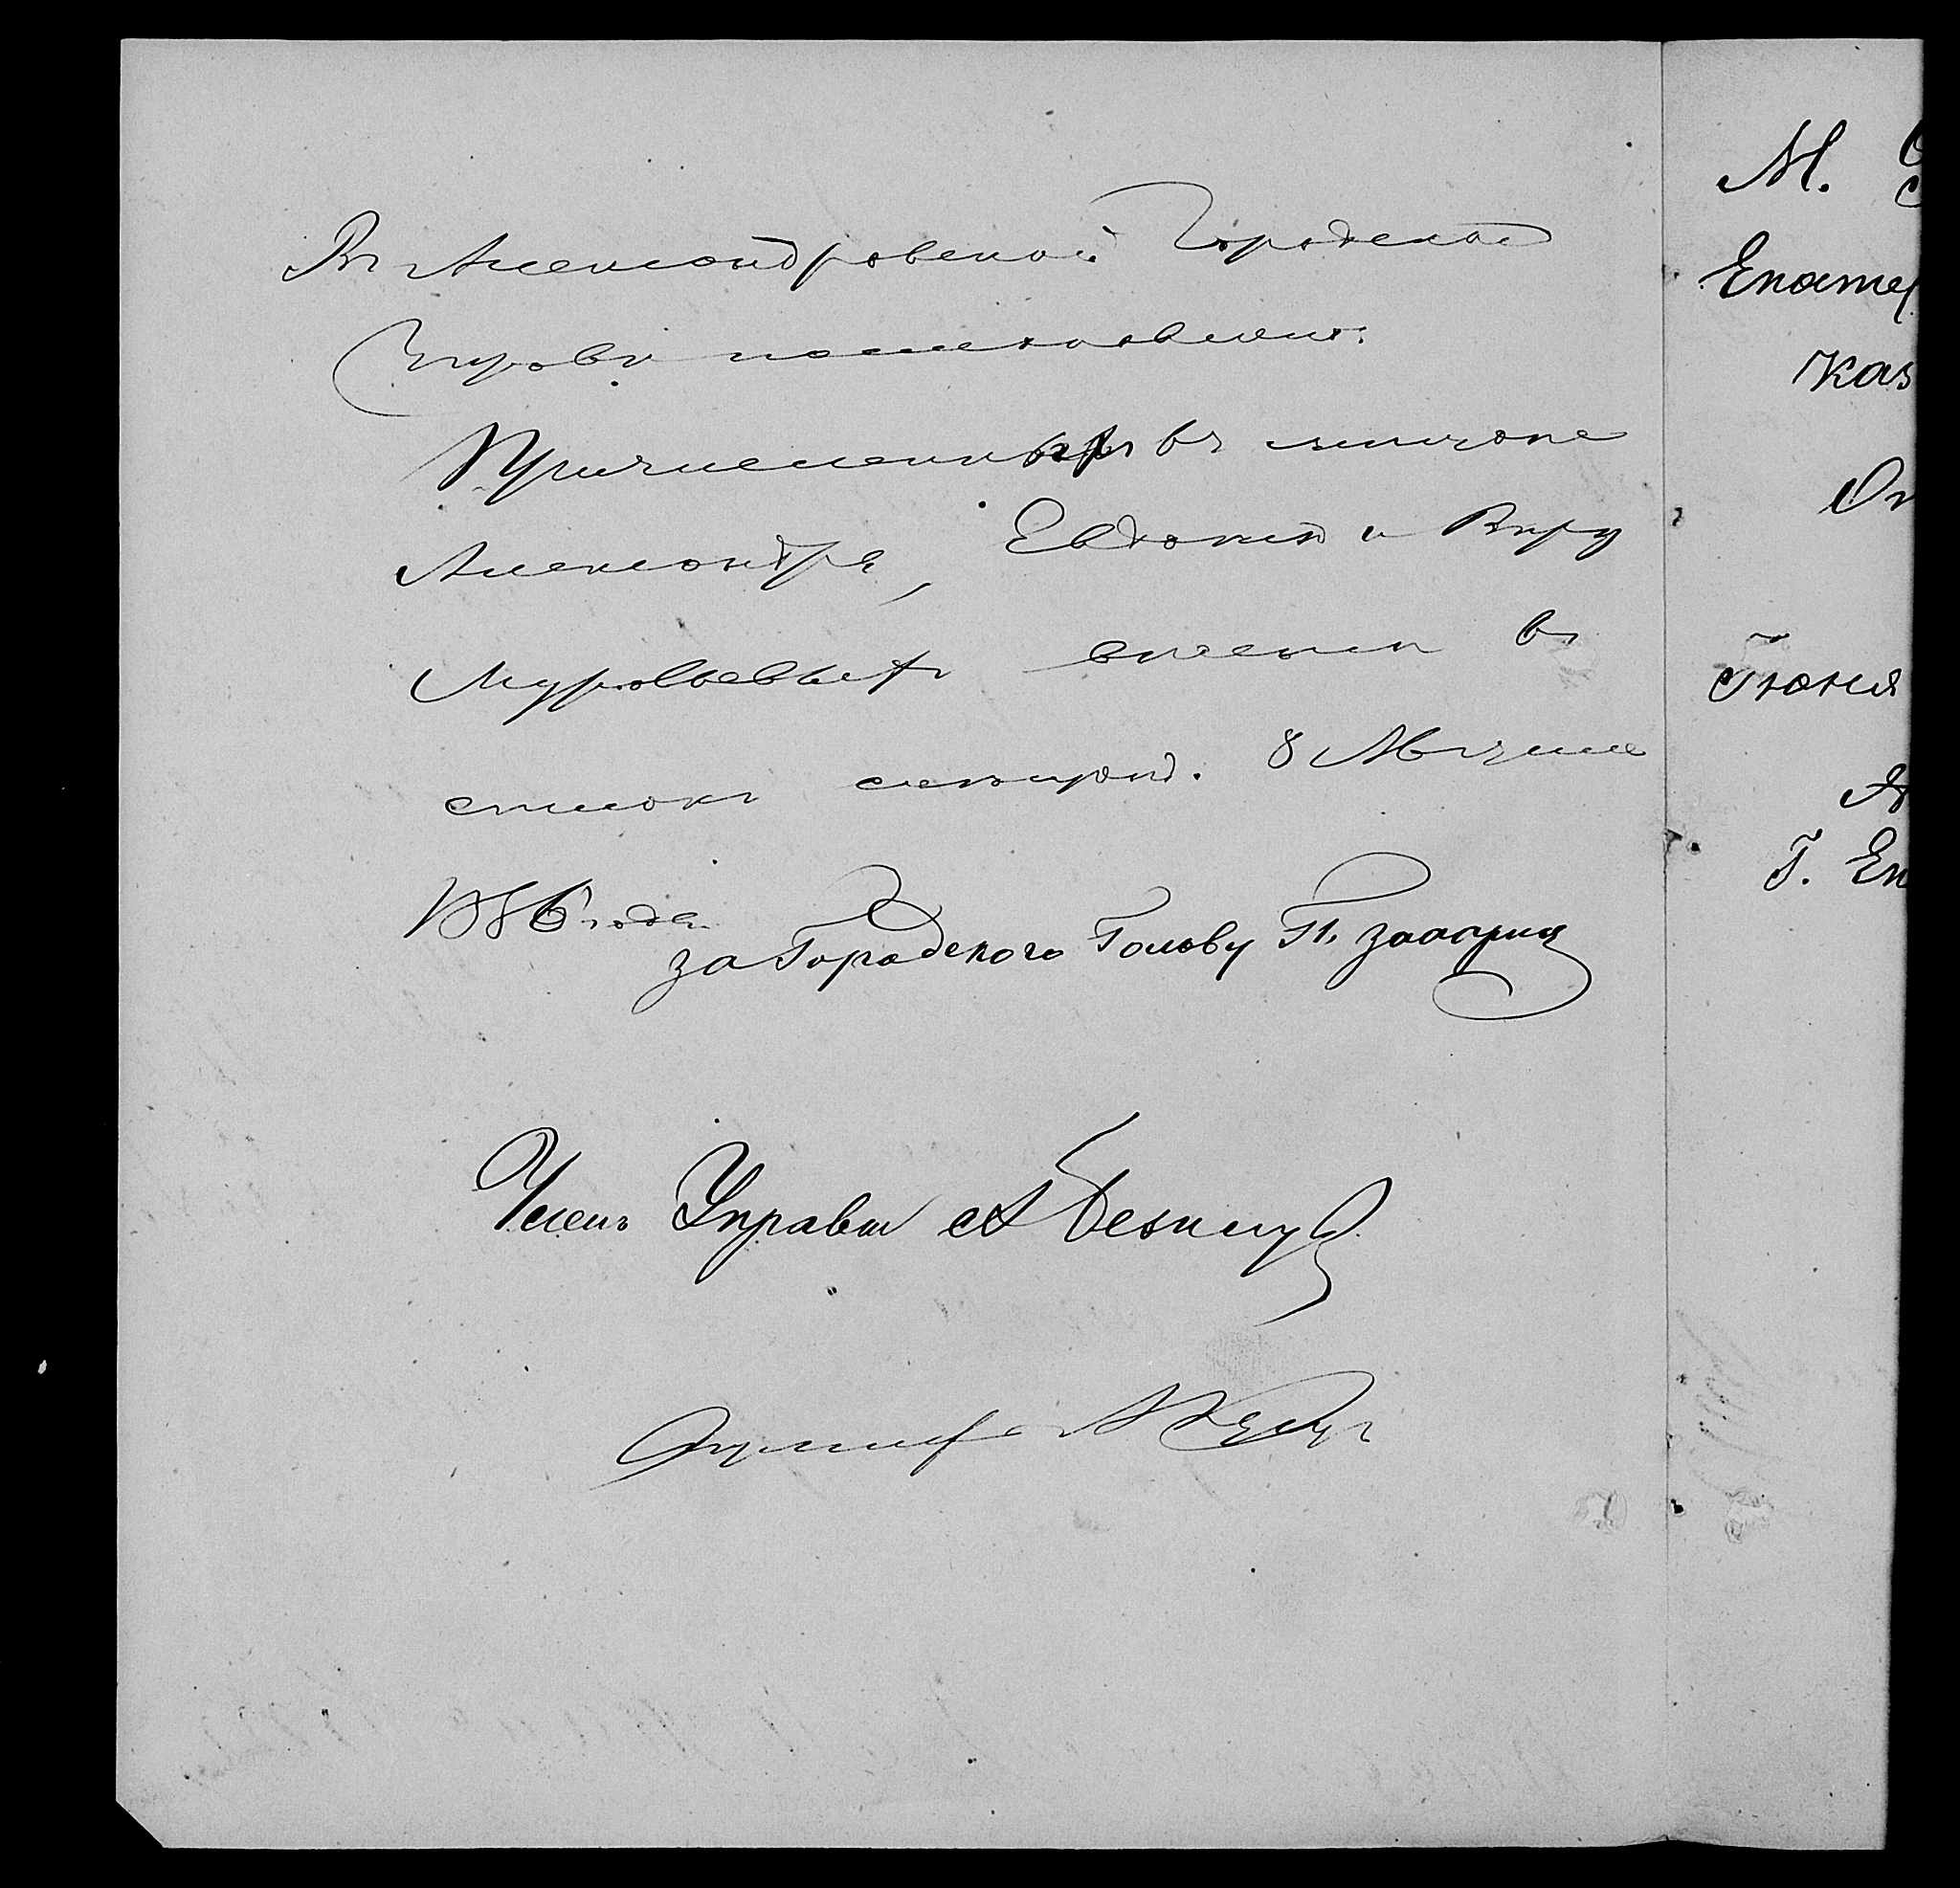 Въ Александровской Городской
Управѣ постановлено:
Причисленныхъ въ мещане
Александра, Евдокію и Вѣру
Муравьевыхъ внести въ
списокъ 8 Августа
1886 года
За Городского Голову П.
Членъ Управы А
М.
Екатер
Каз
Іюня
Г. Ек